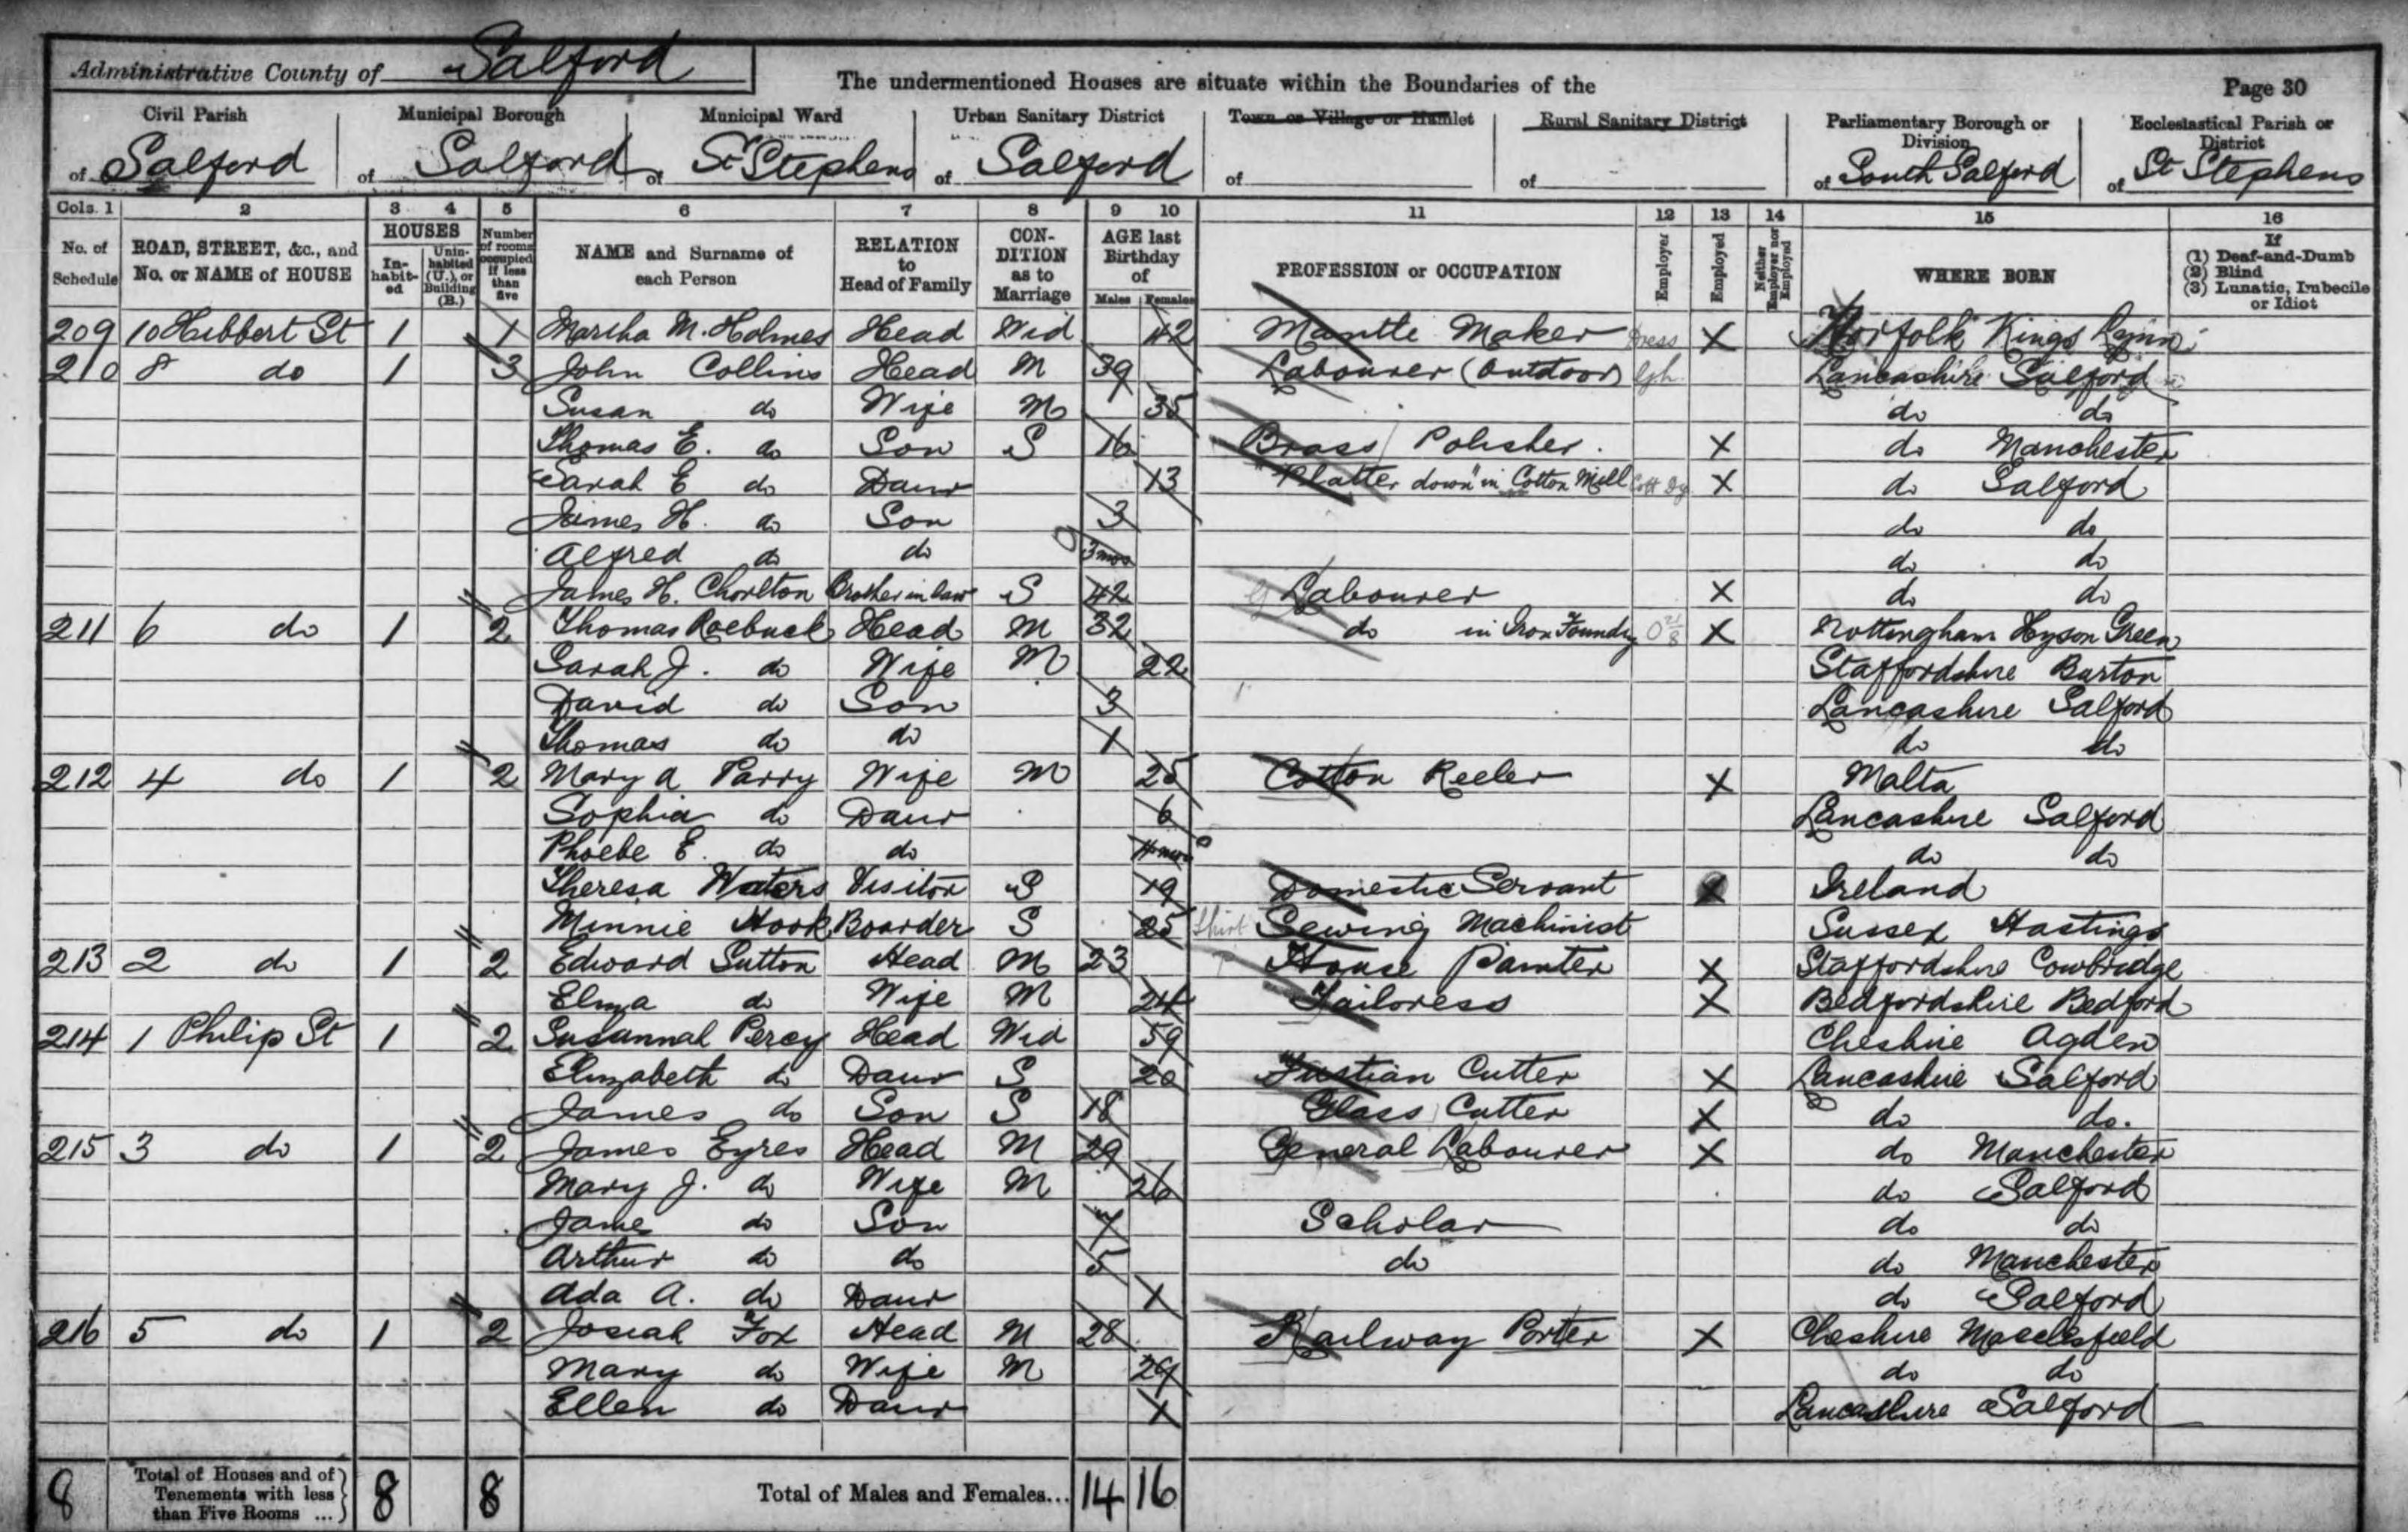 Administrative County of Salford
The undermentioned Houses are situate within the Boundaries of the
Page 30
Civil Parish of Salford
Municipal Borough of Salford
Municipal Ward of St Stephens
Urban Sanitary District of Salford
Town or Village or Hamlet of
Rural Sanitary District of
Parliamentary Borough or Division of South Salford
Ecclesiastical Parish or District of St Stephens
Cols. 1 2 3 4 5 6 7 8 9 10 11 12 13 14 15 16
No. of Schedule
ROAD, STREET, &c., and No. or NAME of HOUSE
HOUSES
Inhabited
Uninhabited (U.), or Building (B.)
Number of rooms occupied if less than five
NAME and Surname of each Person
RELATION to Head of Family
CONDITION as to Marriage
AGE last Birthday of
Males Females
PROFESSION or OCCUPATION
Employer
Employed
Neither Employer nor Employed
WHERE BORN
If
(1) Deaf-and-Dumb
(2) Blind
(3) Lunatic, Imbecile or Idiot
209 10 Hibbert St 1 1 Martha M. Holmes Head Wid 42 Mantle Maker Dress X Norfolk Kings Lynn
210 8 do 1 3 John Collins Head M 39 Labourer (Outdoor) Lancashire Salford
Susan do Wife M 35 do do
Thomas E. do Son S 16 Brass Polisher X do Manchester
Sarah E do Daur 13 "Platter down" in Cotton Mill X do Salford
James H. do Son 3 do do
Alfred do do 3 mos do do
James H. Chorlton Brother in law S 42 Labourer X do do
211 6 do 1 2 Thomas Roebuck Head M 32 do in Iron Foundry X Nottingham Hyson Green
Sarah J. do Wife M 22 Staffordshire Burton
David do Son 3 Lancashire Salford
Thomas do do 1 do do
212 4 do 1 2 Mary A Parry Wife M 25 Cotton Reeler X Malta
Sophia do Daur 6 Lancashire Salford
Phoebe E. do do mos do do
Theresa Waters Visitor S 19 Domestic Servant X Ireland
Minnie Hook Boarder S 25 Shirt Sewing Machinist Sussex Hastings
213 2 do 1 2 Edward Sutton Head M 23 House Painter X Staffordshire Cowbridge
Eliza do Wife M 24 Tailoress X Bedfordshire Bedford
214 1 Philip St 1 2 Susannah Percy Head Wid 59 Cheshire Agden
Elizabeth do Daur S 20 Fustian Cutter X Lancashire Salford
James do Son S 18 Glass Cutter X do do.
215 3 do 1 2 James Eyres Head M 29 General Labourer X do Manchester
Mary J. do Wife M 26 do Salford
Jame do Son 7 Scholar do do
Arthur do do 5 do do Manchester
Ada A. do Daur 1 do Salford
216 5 do 1 2 Josiah Fox Head M 28 Railway Porter X Cheshire Macclesfield
Mary do Wife M 29 do do
Ellen do Daur 1 Lancashire Salford
8 Total of Houses and of Tenements with less than Five Rooms ... 8 8 Total of Males and Females... 14 16